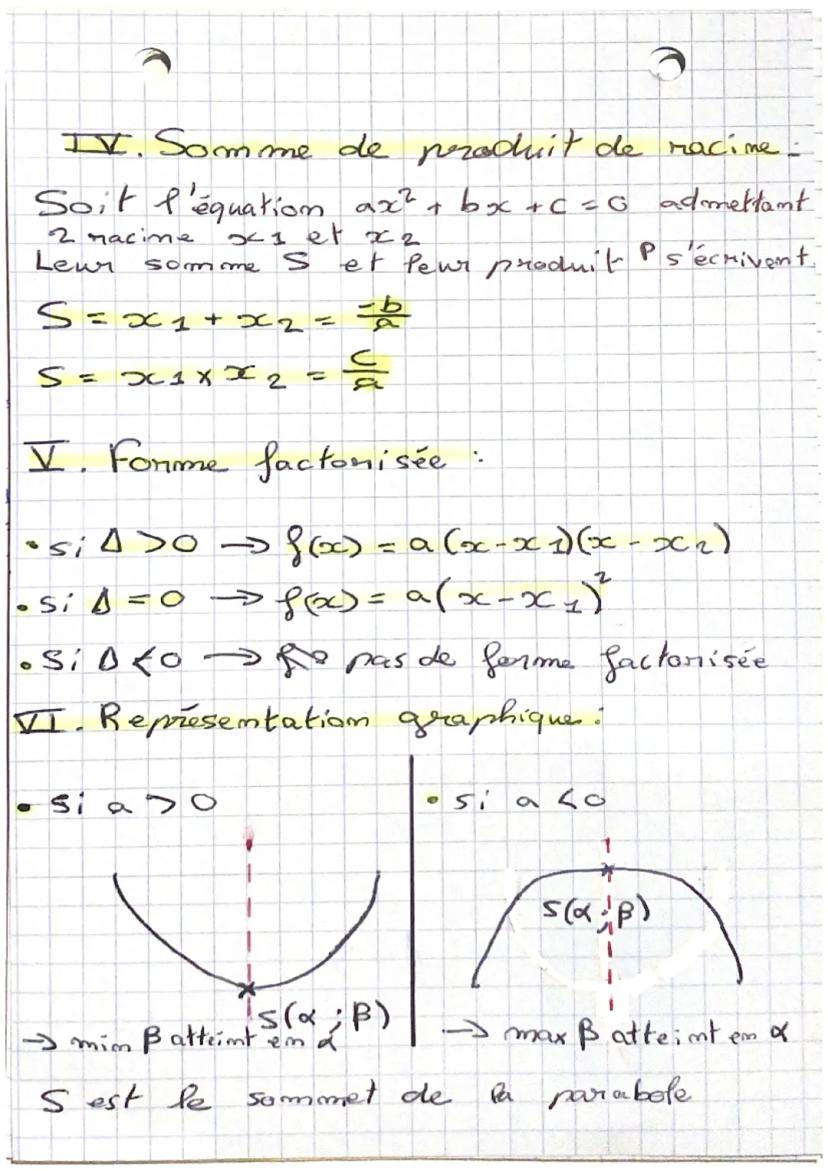 IV. Somme de produit de racine.
Soit l'équation ax² + bx + c = 0 admettant
2 racine x1 et x2
Leur somme S et leur produit P s'écrivent
S = x1 + x2 = -b/a
S = x1 × x2 = c/a
V. Forme factorisée :
• si Δ > 0 → f(x) = a(x-x1)(x-x2)
• si Δ = 0 → f(x) = a(x-x1)²
• Si Δ < 0 → pas de forme factorisée
VI. Représentation graphique :
• si a > 0
S(α ; β)
→ min β atteint en α
• si a < 0
S(α ; β)
→ max β atteint en α
S est le sommet de la parabole